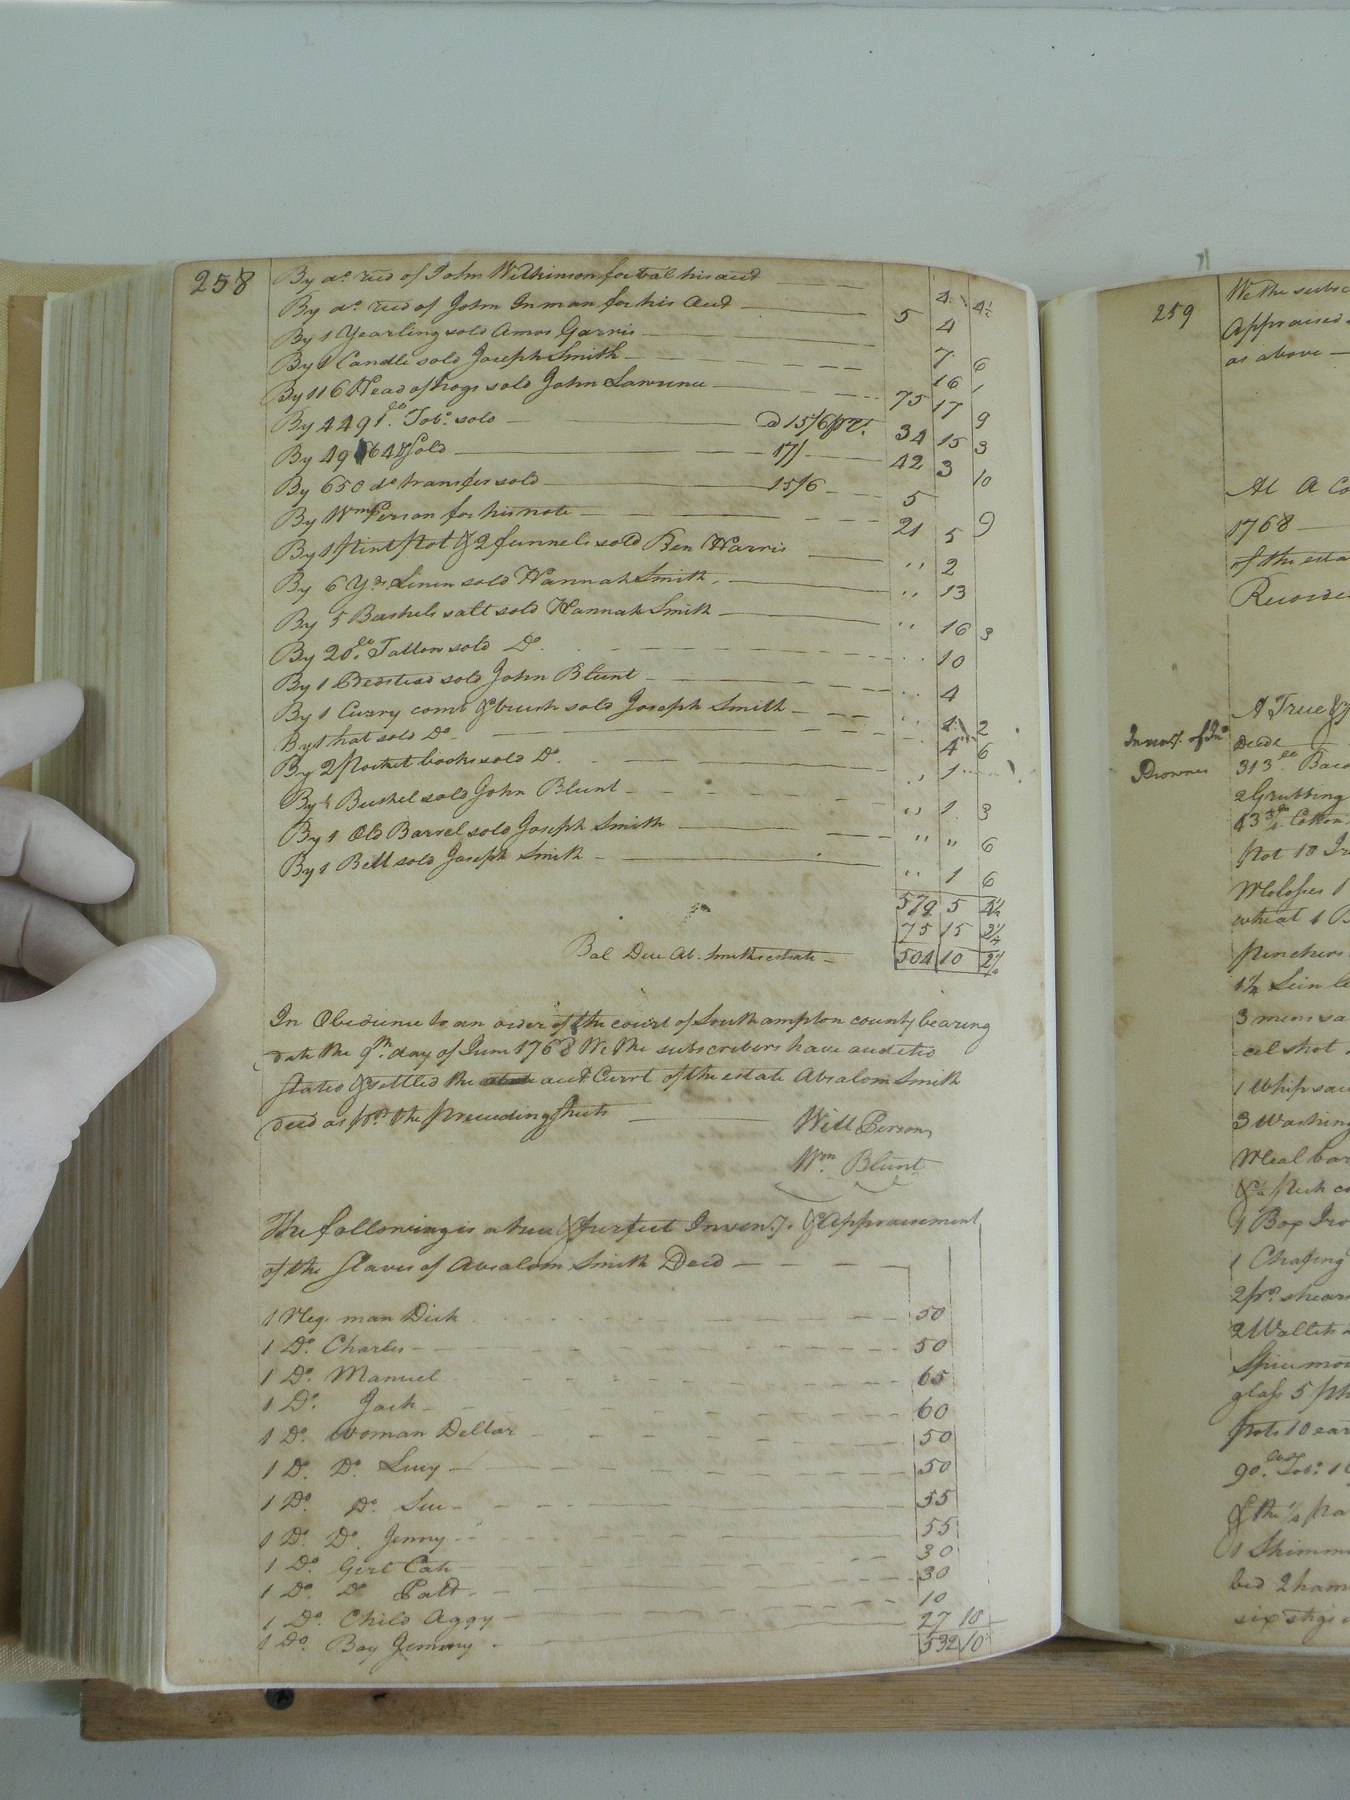 258
By do. recd of John Wilkinson for bal his acct 4 4½
By do. recd of John Inman for his acct 5 4
By 1 Yearling sold Amos Garris 7 6
By 1 Candle sold Joseph Smith 16 1
By 116 Head of hogs sold John Lawrence 75 17 9
By 4491 lb. Tobo. sold @ 15/6 pr Ct. 34 15 3
By 49 648 Sold 17/ 42 3 10
By 650 do transfer sold 15/6 5
By Wm Person for his note 21 5 9
By 1 pint pot & 2 funnels sold Ben Harris " 2
By 6 Yds Linen sold Hannah Smith " 13
By 5 Bushels salt sold Hannah Smith " 16 3
By 20 lb. Tallow sold Do. " 10
By 1 Bedstead sold John Blunt " 4
By 1 Curry comb & brush sold Joseph Smith " 1 2
By 1 hat sold Do. 4 6
By 2 Pocket books sold Do. " 1
By ½ Bushel sold John Blunt " 1 3
By 1 Old Barrel sold Joseph Smith " " 6
By 1 Bell sold Joseph Smith " 1 6
579 5 4½
75 15 2¼
Bal Due Ab. Smiths estate 504 10 2¼
In Obedience to an order of the court of Southampton county bearing
date the 9th. day of June 1768 We the subscribers have audited
stated & settled the acct Currt of the estate Absalom Smith
decd as pr. the preceeding Sheets
Will Person
Wm. Blunt
The following is a true & perfect Inven.y. & Appraisement
of the Slaves of Absalom Smith Decd
1 Neg. man Dick 50
1 Do. Charles 50
1 Do. Manuel 65
1 Do. Jack 60
1 Do. woman Dellar 50
1 Do. Do. Lucy 50
1 Do. Do. Sue 55
1 Do. Do. Jenny 55
1 Do. Girl Cate 30
1 Do. Do. Patt 30
1 Do. Child Aggy 10
1 Do. Boy Jemmy 27 10
532 10
259
We the subsc
Appraised
as above
At A Co
1768
of the esta
Recorde
A True & p
Inven.y. of Jno.
Browne
Decd
313 lb. Baco
2 Grubbing
43 ½ lb Cotton
pot 10 Ir
Molasses 1
wheat 1 B
pinchers
1½ Sein le
3 mens sa
cel shot
1 whip saw
3 Washing
Meal bar
& ½ peck
1 Box Iro
1 Chafing
2 pr. shears
2 Wallets
Spice mor
glass 5 ph
pots 10 ear
90 lb. Tobo. 1
& the ½ pa
1 Skimme
bed 2 ham
six stigs